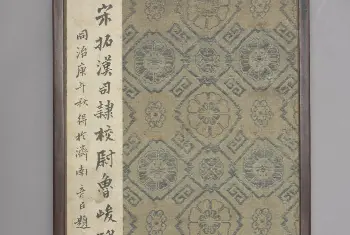 宋拓漢司隸校尉魯峻碑
同治庚午秋得於濟南
題